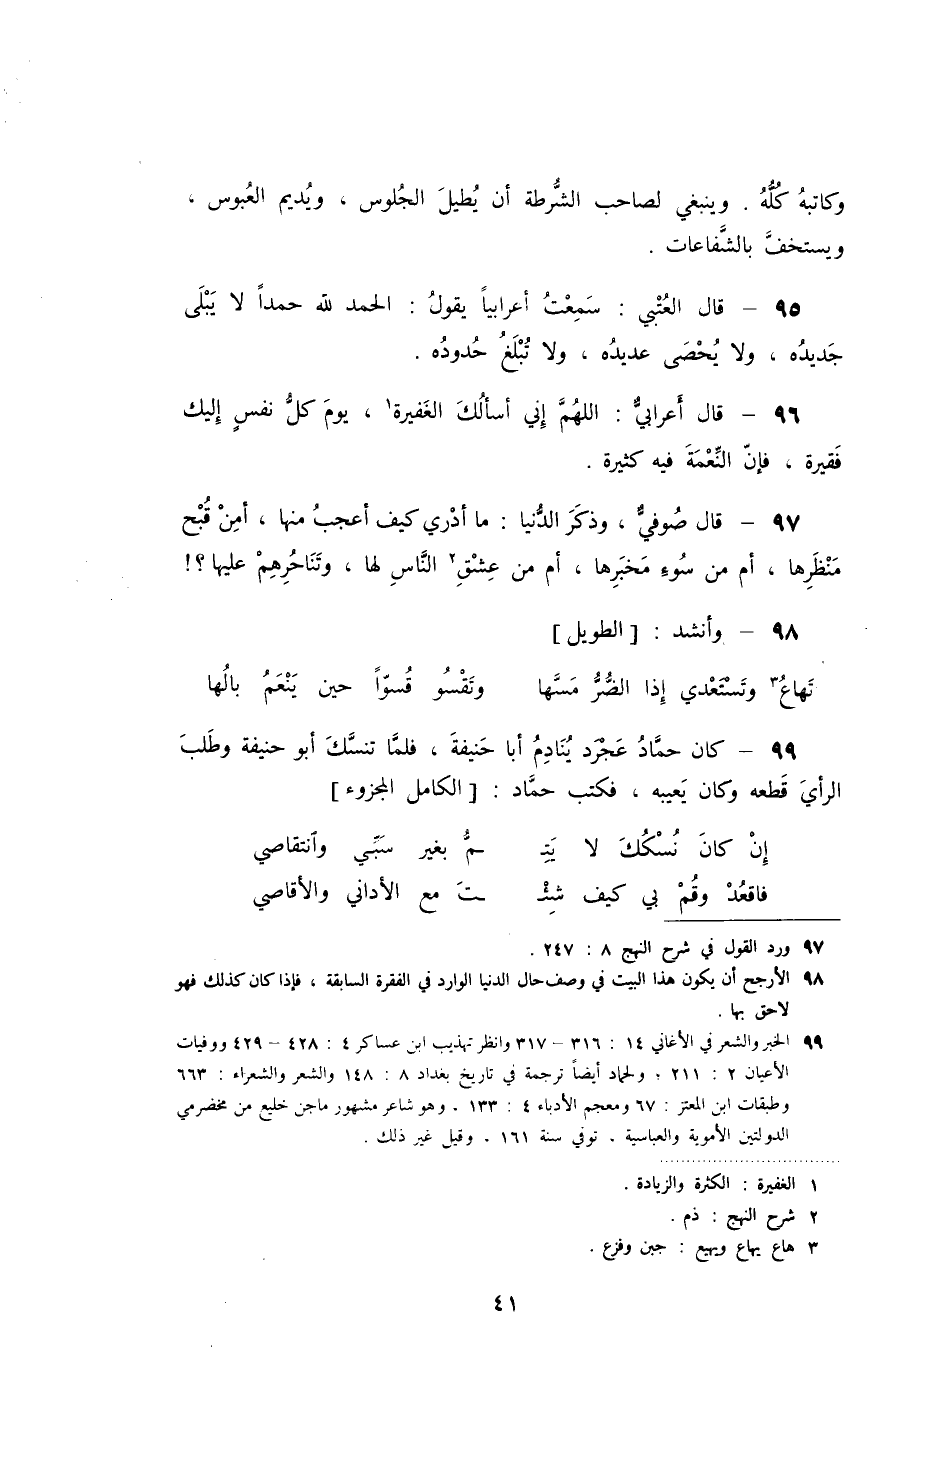 وكاتبهُ كُلُّهُ . وينبغي لصاحب الشُّرطة أن يُطيلَ الجُلوس ، ويُديم العُبوس ،
ويستخفَّ بالشَّفاعات .
٩٥ – قال العُتْبي : سَمِعْتُ أعرابياً يقولُ : الحمد لله حمداً لا يَبْلَى
جَديدُه ، ولا يُحْصَى عديدُه ، ولا تُبْلَغُ حُدودُه .
٩٦ – قال أَعرابيٌّ : اللهُمَّ إني أسألُكَ الغَفيرة١ ، يومَ كلُّ نفسٍ إليك
فَقيرة ، فإنّ النِّعْمَةَ فيه كثيرة .
٩٧ – قال صُوفيٌّ ، وذكَرَ الدُّنيا : ما أدْري كيف أعجبُ منها ، أمِنْ قُبْح
مَنْظَرِها ، أم من سُوءِ مَخبَرِها ، أم من عِشْقِ٢ النَّاسِ لها ، وتَنَاحُرِهِمْ عليها ؟!
٩٨ – وأنشد : [ الطويل ]
تَهاعُ٣ وتَسْتَعْدي إذا الضُّرُّ مَسَّها وتَقْسُو قُسوّاً حين يَنْعَمُ بالُها
٩٩ – كان حمَّادُ عَجْرَد يُنَادِمُ أبا حَنيفةَ ، فلمَّا تنسَّكَ أبو حنيفة وطَلبَ
الرأيَ قَطعه وكان يَعيبه ، فكتب حمَّاد : [ الكامل المجزوء ]
إنْ كانَ نُسْكُكَ لا يَتِـ ـمُّ بغير سَبّي وٱنتقاصي
فاقعُدْ وقُمْ بي كيف شِئْـ ـتَ مع الأداني والأقاصي
٩٧ ورد القول في شرح النهج ٨ : ٢٤٧ .
٩٨ الأرجح أن يكون هذا البيت في وصف حال الدنيا الوارد في الفقرة السابقة ، فإذا كان كذلك فهو
لاحق بها .
٩٩ الخبر والشعر في الأغاني ١٤ : ٣١٦ – ٣١٧ وانظر تهذيب ابن عساكر ٤ : ٤٢٨ – ٤٢٩ ووفيات
الأعيان ٢ : ٢١١ ، ولحماد أيضاً ترجمة في تاريخ بغداد ٨ : ١٤٨ والشعر والشعراء : ٦٦٣
وطبقات ابن المعتز : ٦٧ ومعجم الأدباء ٤ : ١٣٣ . وهو شاعر مشهور ماجن خليع من مخضرمي
الدولتين الأموية والعباسية . توفي سنة ١٦١ . وقيل غير ذلك .
١ الغفيرة : الكثرة والزيادة .
٢ شرح النهج : ذم .
٣ هاع يهاع ويهيع : جبن وفزع .
٤١